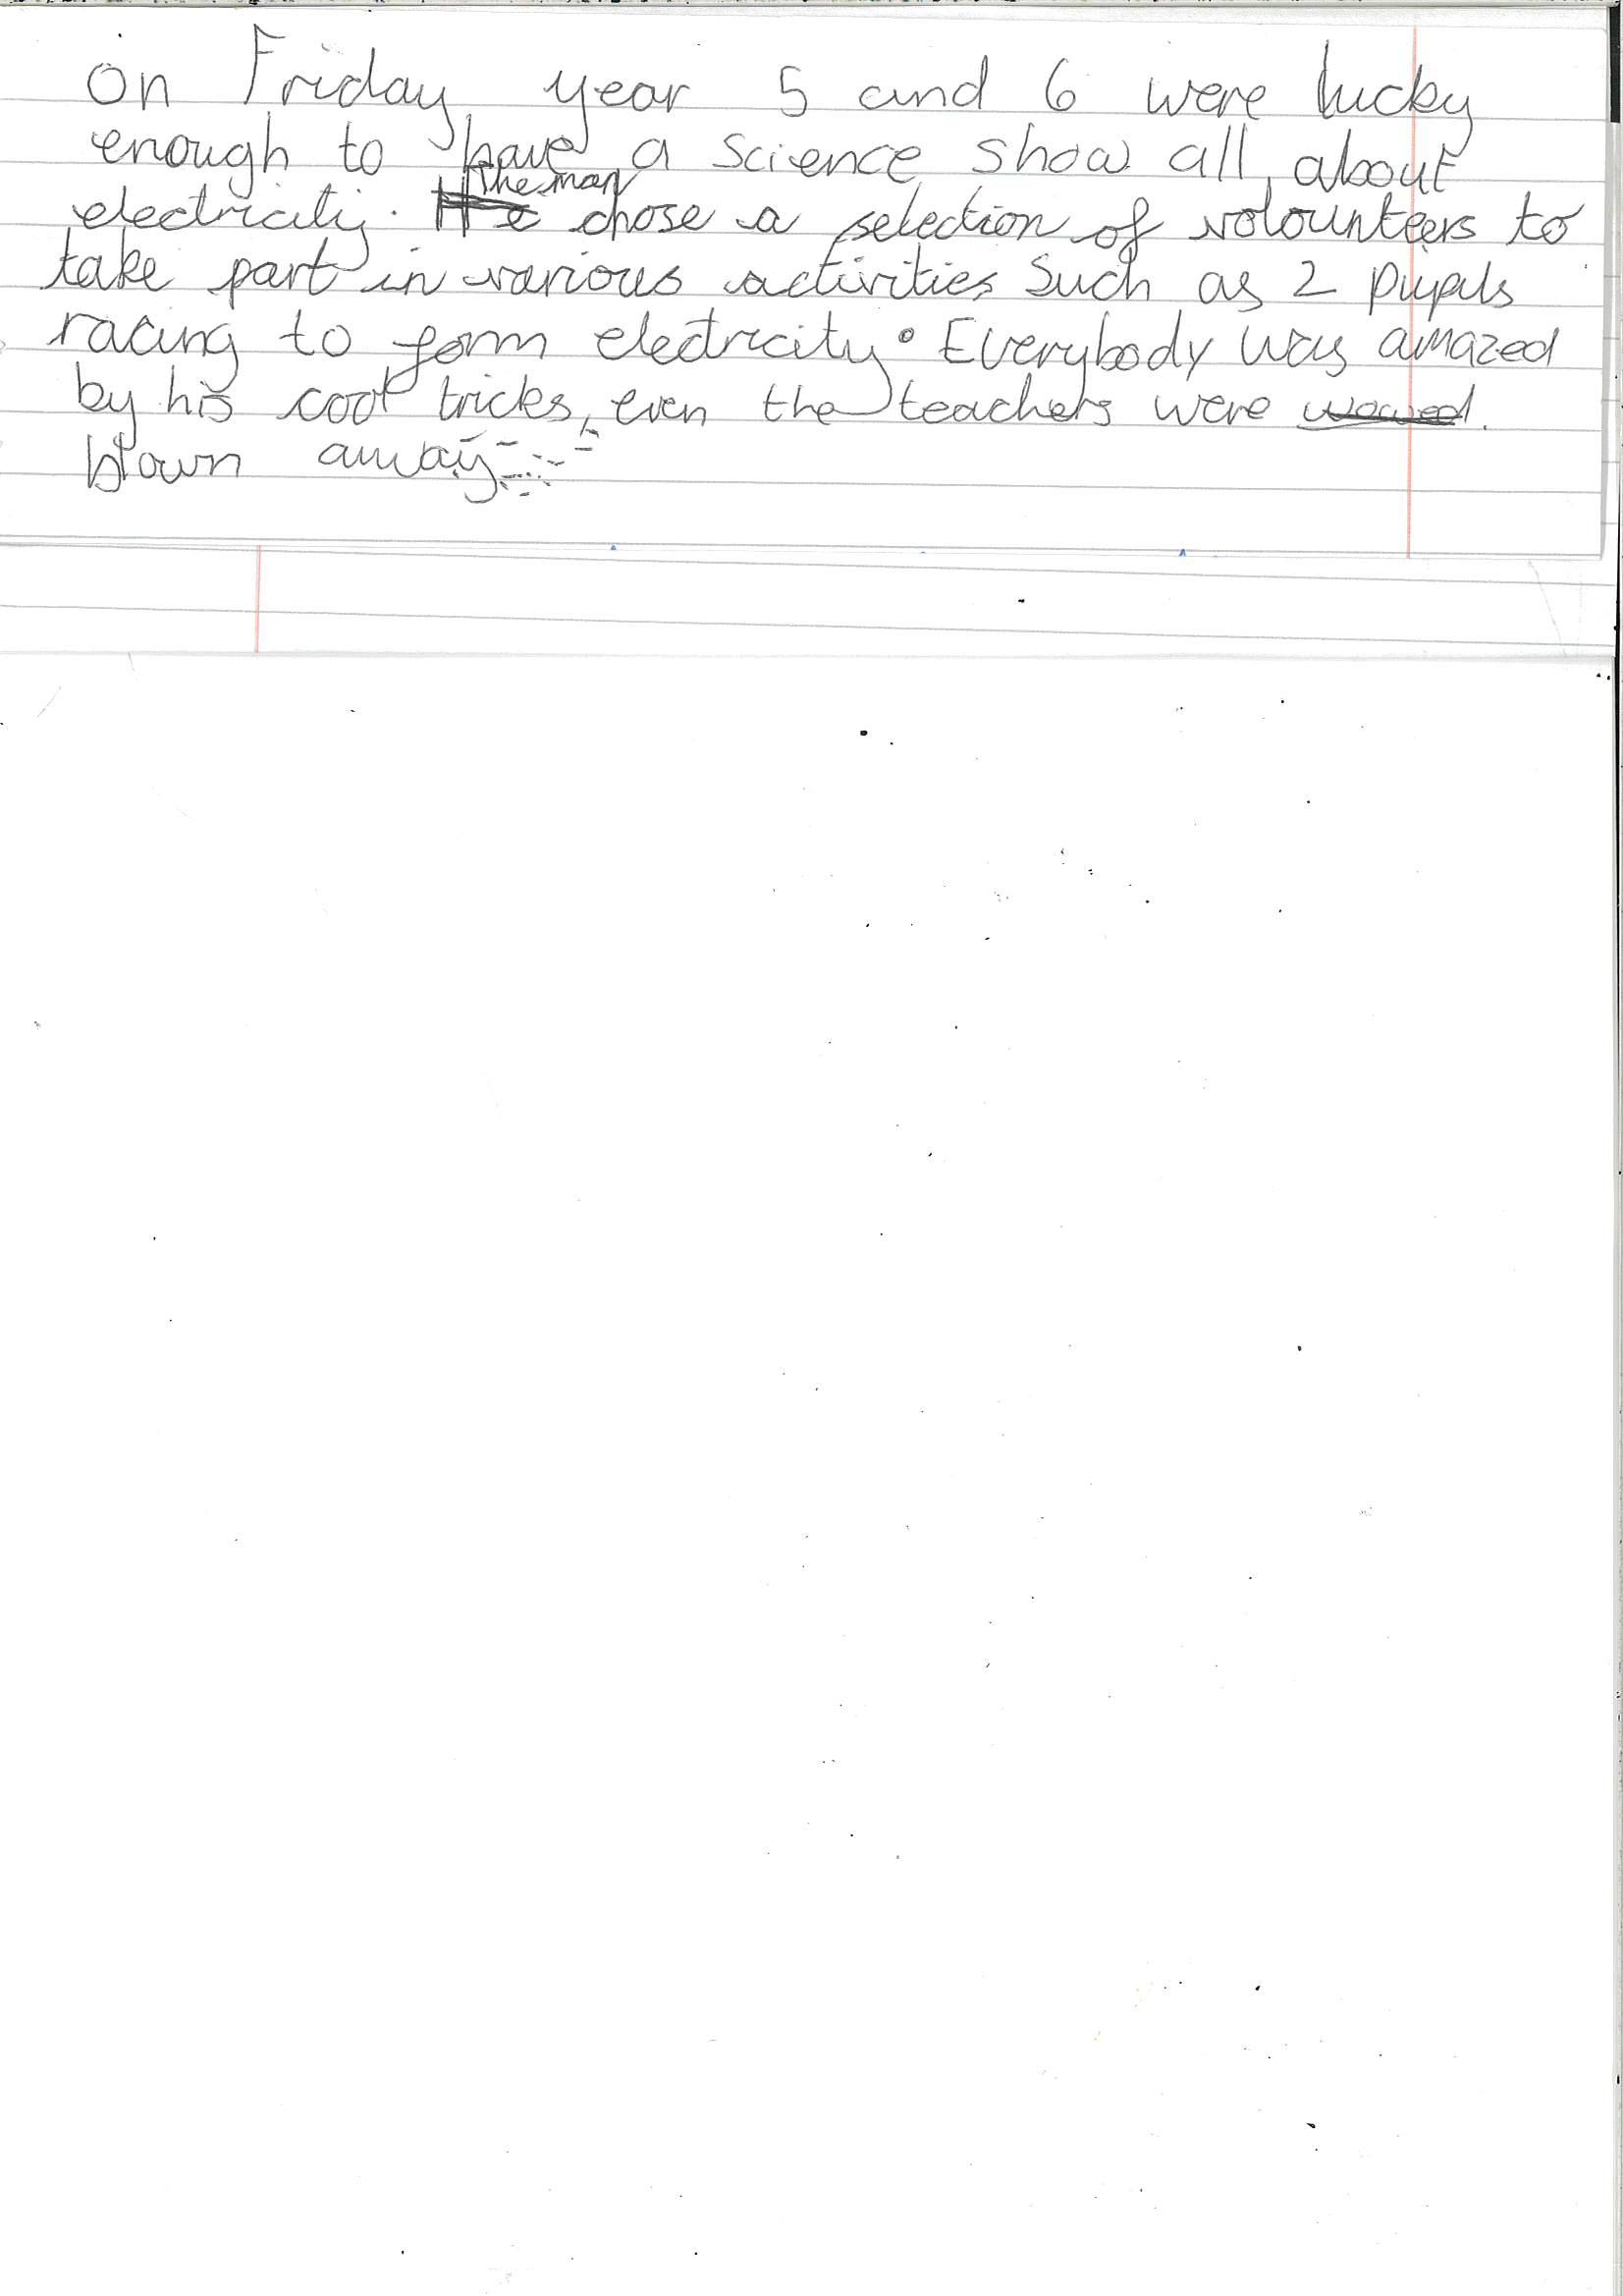 On Friday year 5 and 6 were lucky
enough to have a science show all about
electricity. the man chose a selection of volounteers to
take part in various activities Such as 2 pupils
racing to form electricity. Everybody was amazed
by his cool tricks, even the teachers were wowed.
blown away